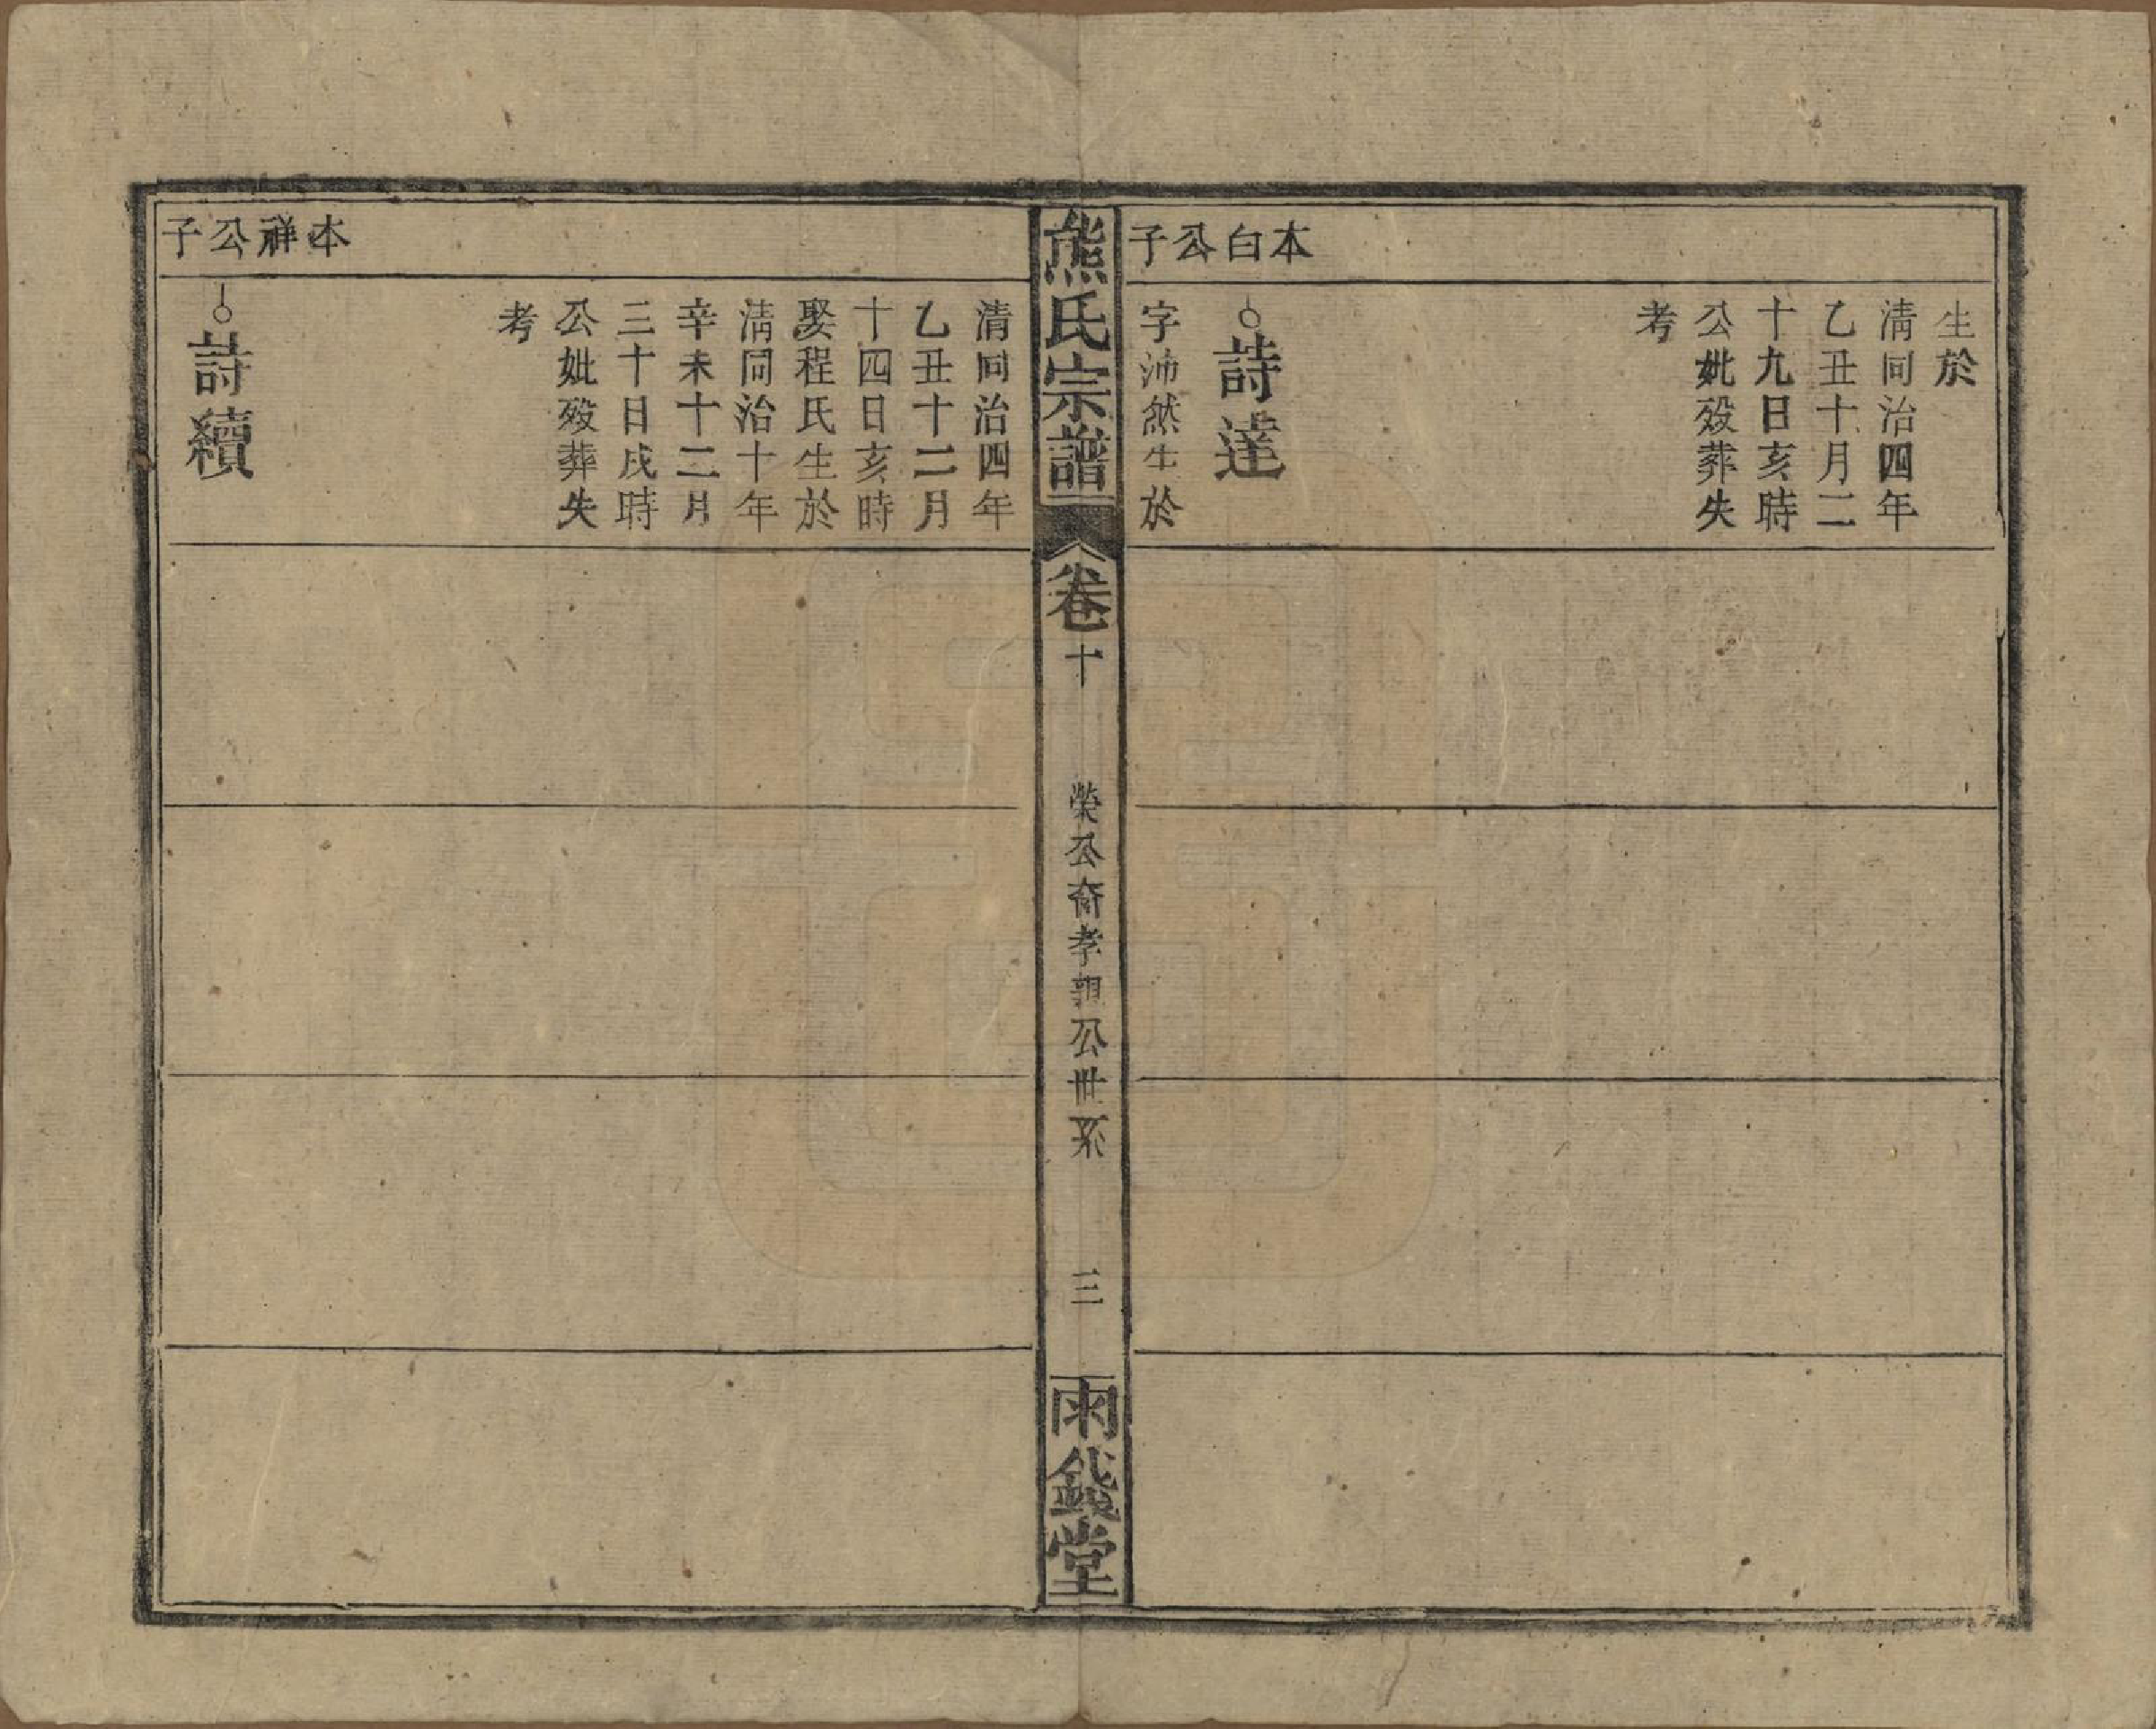 本白公子
生於
清同治四年
乙丑十月二
十九日亥時
公妣歿葬失
考
詩達
字沛然生於
熊氏宗譜
卷十
榮公裔孝親公世系
三
雨錢堂
本祥公子
清同治四年
乙丑十二月
十四日亥時
娶程氏生於
清同治十年
辛未十二月
三十日戌時
公妣歿葬失
考
詩續